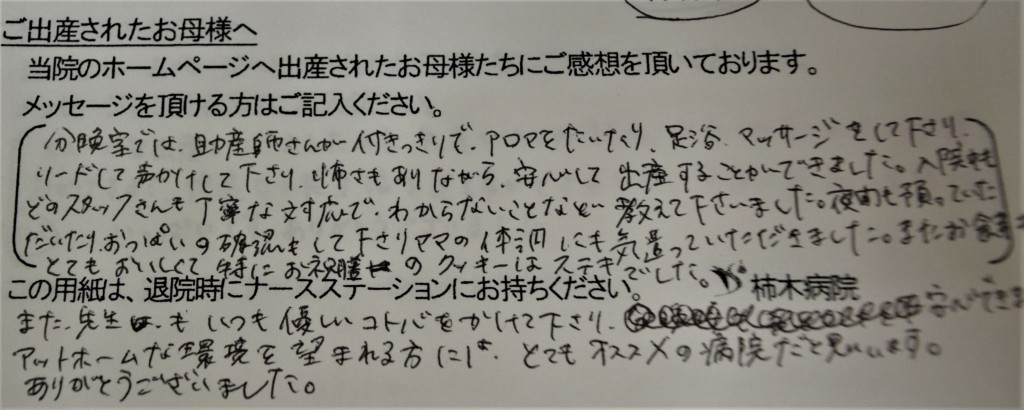 ご出産されたお母様へ
当院のホームページへ出産されたお母様たちにご感想を頂いております。
メッセージを頂ける方はご記入ください。
分娩室では、助産師さんが付きっきりで、アロマをたいたり、足浴、マッサージをして下さり、
リードして声かけして下さり、怖さもありながら、安心して出産することができました。入院中も
どのスタッフさんも丁寧な対応で、わからないことなど教えて下さいました。夜間も預っていた
だいたり、おっぱいの確認もして下さりママの体調にも気遣っていただきました。またお食事も
とてもおいしくて特にお祝膳のクッキーはステキでした。
この用紙は、退院時にナースステーションにお持ちください。 柿木病院
また、先生も いつも優しいコトバをかけて下さり、安心できま
アットホームな環境を望まれる方には、とてもオススメの病院だと思います。
ありがとうございました。